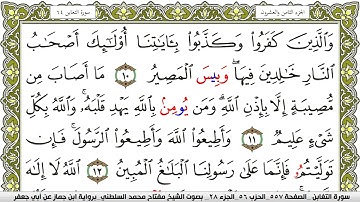 الجزء الثامن والعشرون سورة التغابن ٦٤
وَالَّذِينَ كَفَرُوا وَكَذَّبُوا بِـَٔايَٰتِنَا أُوْلَٰٓئِكَ أَصْحَٰبُ
النَّارِ خَٰلِدِينَ فِيهَا وَبِيسَ الْمَصِيرُ ١٠ مَا أَصَابَ مِن
مُّصِيبَةٍ إِلَّا بِإِذْنِ اللَّهِ وَمَن يُومِنۢ بِاللَّهِ يَهْدِ قَلْبَهُۥ وَاللَّهُ بِكُلِّ
شَيْءٍ عَلِيمٌ ١١ وَأَطِيعُوا اللَّهَ وَأَطِيعُوا الرَّسُولَ فَإِن
تَوَلَّيْتُمْ فَإِنَّمَا عَلَىٰ رَسُولِنَا الْبَلَٰغُ الْمُبِينُ ١٢ اللَّهُ لَا إِلَٰهَ
سورة التغابن الصفحة ٥٥٧ الحزب ٥٦ الجزء ٢٨ بصوت الشيخ مفتاح محمد السلطني برواية ابن جماز عن أبي جعفر